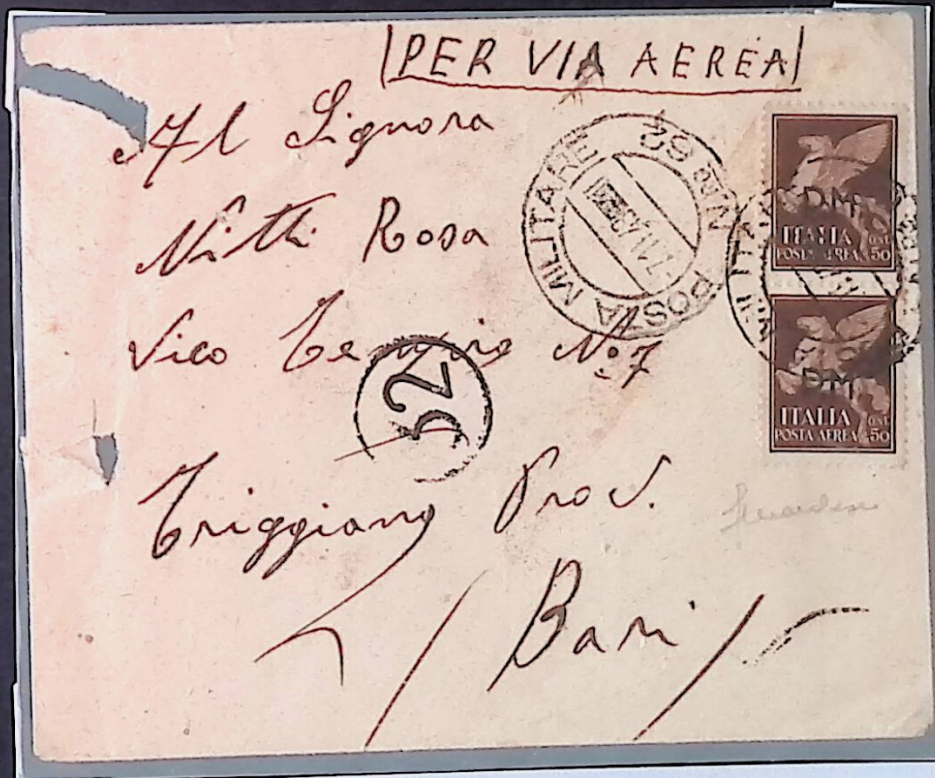 PER VIA AEREA
Al Signora
Nitti Rosa
Vico N.º 7
Triggiano Prov.
Bari
32
POSTA MILITARE N. 62
P.M.
ITALIA CENT.
POSTA AEREA 50
P.M.
ITALIA CENT.
POSTA AEREA 50